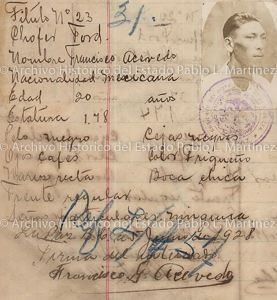 Filito Nº 23
31.
Chofer Ford.
Nombre Francisco Acevedo
Archivo Histórico del Estado Pablo L. Martínez
Nacionalidad Mexicana
Edad 20 años
Estatura 1.78
Archivo Histórico del Estado Pablo L. Martínez
Pelo negro Cejas negras
Ojos Cafés Color Trigueño
Archivo Histórico del Estado Pablo L. Martínez
Nariz recta Boca chica
Frente regular
Señas particulares ninguna
Archivo Histórico del Estado Pablo L. Martínez
La Paz de 1928
Firma del
Francisco Acevedo